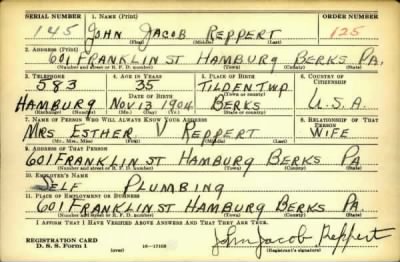 SERIAL NUMBER 1. NAME (Print) ORDER NUMBER
145 JOHN JACOB REPPERT 125
(First) (Middle) (Last)
2. ADDRESS (Print)
601 FRANKLIN ST HAMBURG BERKS PA.
(Number and street or R. F. D. number) (Town) (County) (State)
3. TELEPHONE 4. AGE IN YEARS 5. PLACE OF BIRTH 6. COUNTRY OF CITIZENSHIP
583 35 TILDEN TWP
DATE OF BIRTH (Town or county)
HAMBURG NOV 13 1904 BERKS U.S.A.
(Exchange) (Number) (Mo.) (Day) (Yr.) (State or country)
7. NAME OF PERSON WHO WILL ALWAYS KNOW YOUR ADDRESS 8. RELATIONSHIP OF THAT PERSON
MRS ESTHER V REPPERT WIFE
(Mr., Mrs., Miss) (First) (Middle) (Last)
9. ADDRESS OF THAT PERSON
601 FRANKLIN ST HAMBURG BERKS PA
(Number and street or R. F. D. number) (Town) (County) (State)
10. EMPLOYER'S NAME
SELF PLUMBING
11. PLACE OF EMPLOYMENT OR BUSINESS
601 FRANKLIN ST HAMBURG BERKS PA.
(Number and street or R. F. D. number) (Town) (County) (State)
I AFFIRM THAT I HAVE VERIFIED ABOVE ANSWERS AND THAT THEY ARE TRUE.
John Jacob Reppert
REGISTRATION CARD
D. S. S. Form 1 (over) 16—17105 (Registrant's signature)